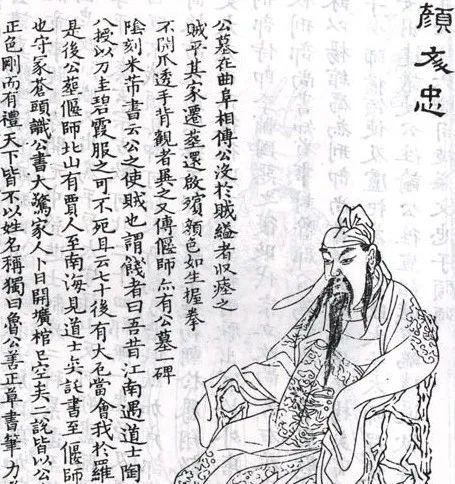 顏文忠
公墓在曲阜相傳公沒於賊縊者收瘞之
賊平其家遷塟還啟殯顏色如生握拳
不開爪透手背觀者異之又傳偃師亦有公墓一碑
陰刻米芾書云公之使賊也謂餞者曰吾昔江南遇道士陶
八授以刀圭碧霞服之可不死且云七十後有大厄當會我於羅
是後公葬偃師北山有賈人至南海見道士奕託書至偃師
也守冢蒼頭識公書大驚家人卜日開壙棺已空矣二說皆以公
正色剛而有禮天下皆不以姓名稱獨曰魯公善正草書筆力